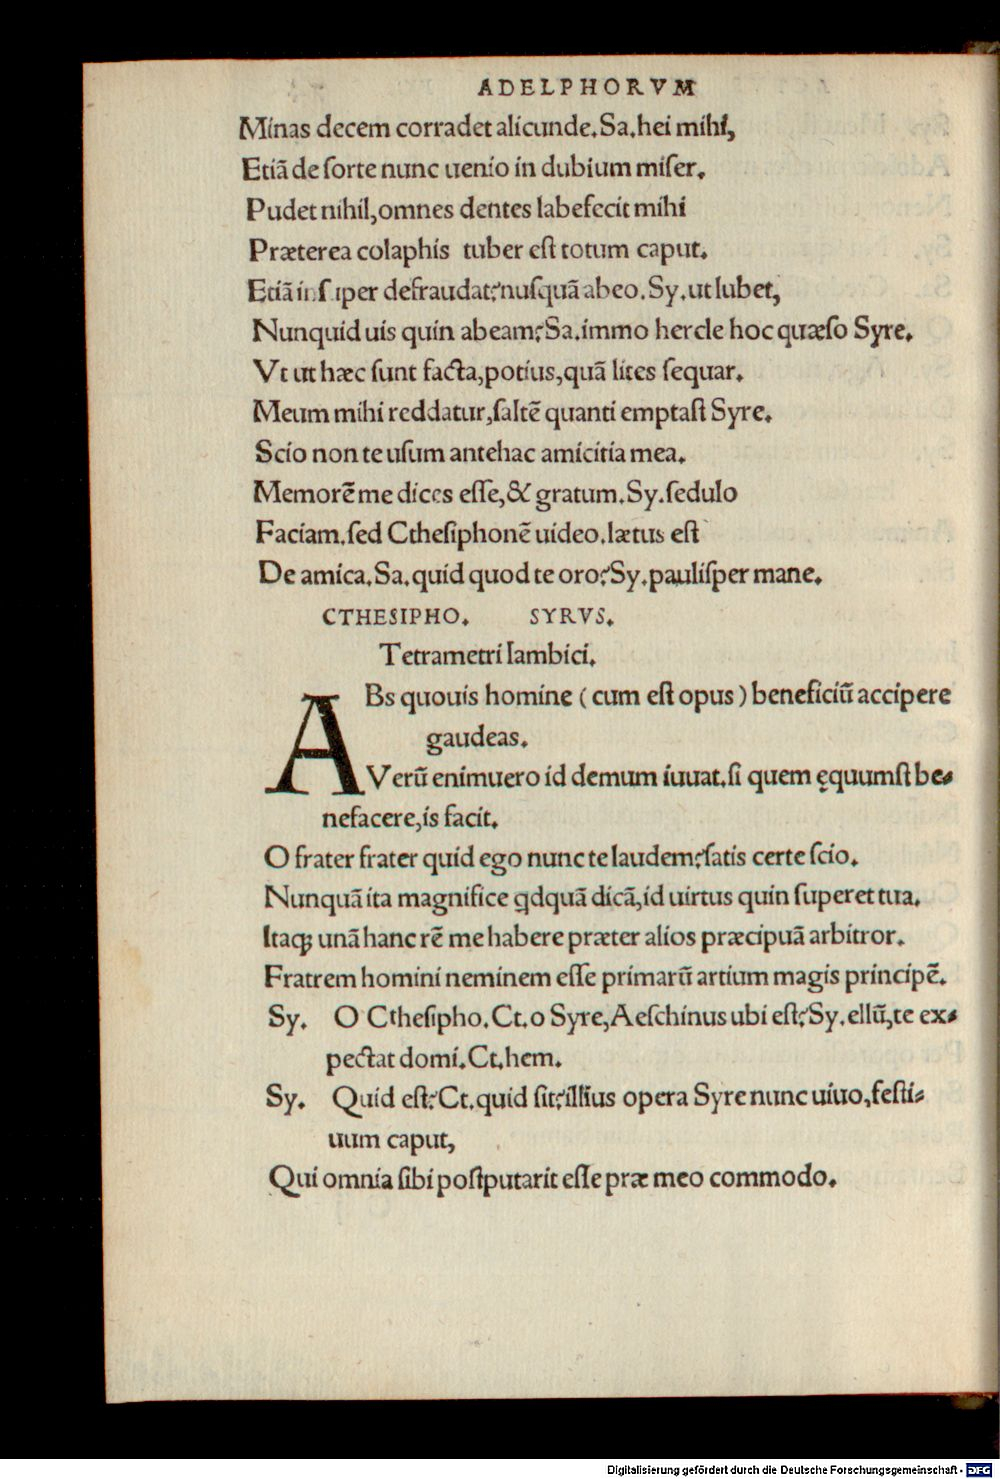 ADELPHORVM
Minas decem corradet alicunde. Sa. hei mihi,
Etiã de ſorte nunc uenio in dubium miſer.
Pudet nihil, omnes dentes labefecit mihi
Præterea colaphis tuber eſt totum caput.
Etiã inſuper defraudat? nuſquã abeo. Sy. ut lubet,
Nunquid uis quin abeam? Sa. immo hercle hoc quæſo Syre.
Vt ut hæc ſunt facta, potius, quã lites ſequar.
Meum mihi reddatur, ſaltẽ quanti emptaſt Syre.
Scio non te uſum antehac amicitia mea.
Memorẽ me dices eſſe, & gratum. Sy. ſedulo
Faciam. ſed Ctheſiphonẽ uideo. lætus eſt
De amica. Sa. quid quod te oro? Sy. pauliſper mane.
CTHESIPHO. SYRVS.
Tetrametri Iambici.
ABs quouis homine (cum eſt opus) beneficiũ accipere
gaudeas.
Verũ enimuero id demum iuuat. ſi quem ęquumſt be-
nefacere, is facit.
O frater frater quid ego nunc te laudem? ſatis certe ſcio.
Nunquã ita magnifice qdquã dicã, id uirtus quin ſuperet tua.
Itaq; unã hanc rẽ me habere præter alios præcipuã arbitror.
Fratrem homini neminem eſſe primarũ artium magis principẽ.
Sy. O Ctheſipho. Ct. o Syre, Aeſchinus ubi eſt? Sy. ellũ, te ex-
pectat domi. Ct. hem.
Sy. Quid eſt? Ct. quid ſit? illius opera Syre nunc uiuo, feſti-
uum caput,
Qui omnia ſibi poſtputarit eſſe præ meo commodo.
Digitalisierung gefördert durch die Deutsche Forschungsgemeinschaft - DFG